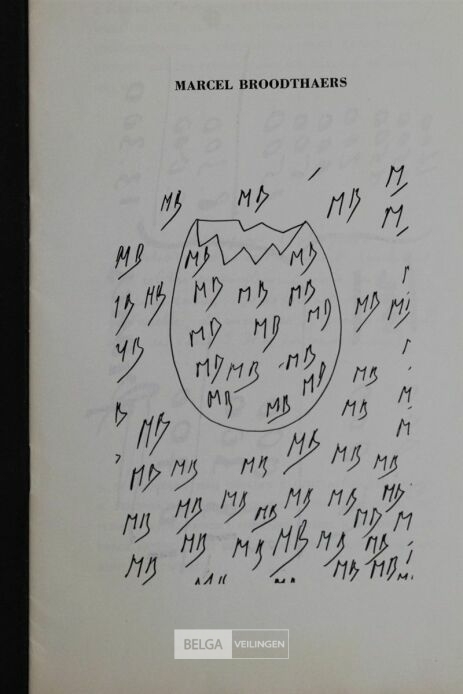 MARCEL BROODTHAERS
MB MB MB M
M
MB MB MB
MB MB MB MB MB
MB MB
MB MB
MB MB MB MB
MB MB MB
MB MB M
MB MB M
MB MB MB MB MB
MB MB MB MB MB MB
MB MB MB M
MB MB MB MB MB
MB MB MB
BELGA VEILINGEN